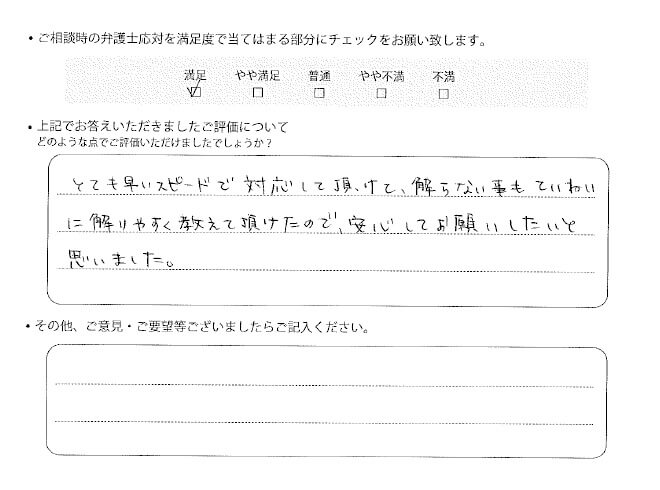 ・ご相談時の弁護士応対を満足度で当てはまる部分にチェックをお願い致します。
満足 やや満足 普通 やや不満 不満
・上記でお答えいただきましたご評価について
どのような点でご評価いただけましたでしょうか？
とても早いスピードで対応して頂けて、解らない事もていねい
に解りやすく教えて頂けたので、安心してお願いしたいと
思いました。
・その他、ご意見・ご要望等ございましたらご記入ください。